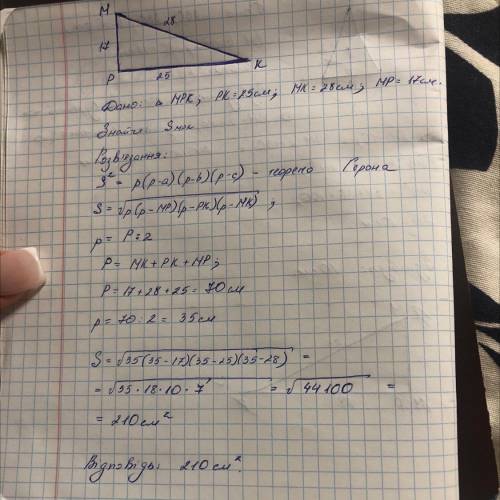 M
28
17
P
25
K
Дано: △ MPK; PK=25см; MK=28см; MP=17см.
Знайти
Розв'язання:
S² = p(p-a)(p-b)(p-c) - теорема Герона
S=√p(p-MP)(p-PK)(p-MK) ;
p = P:2
P= MK+PK+MP;
P= 17+28+25= 70см
p= 70:2= 35см
S=√35(35-17)(35-25)(35-28) =
= √35·18·10·7 = √44100 =
= 210см²
Відповідь: 210см².